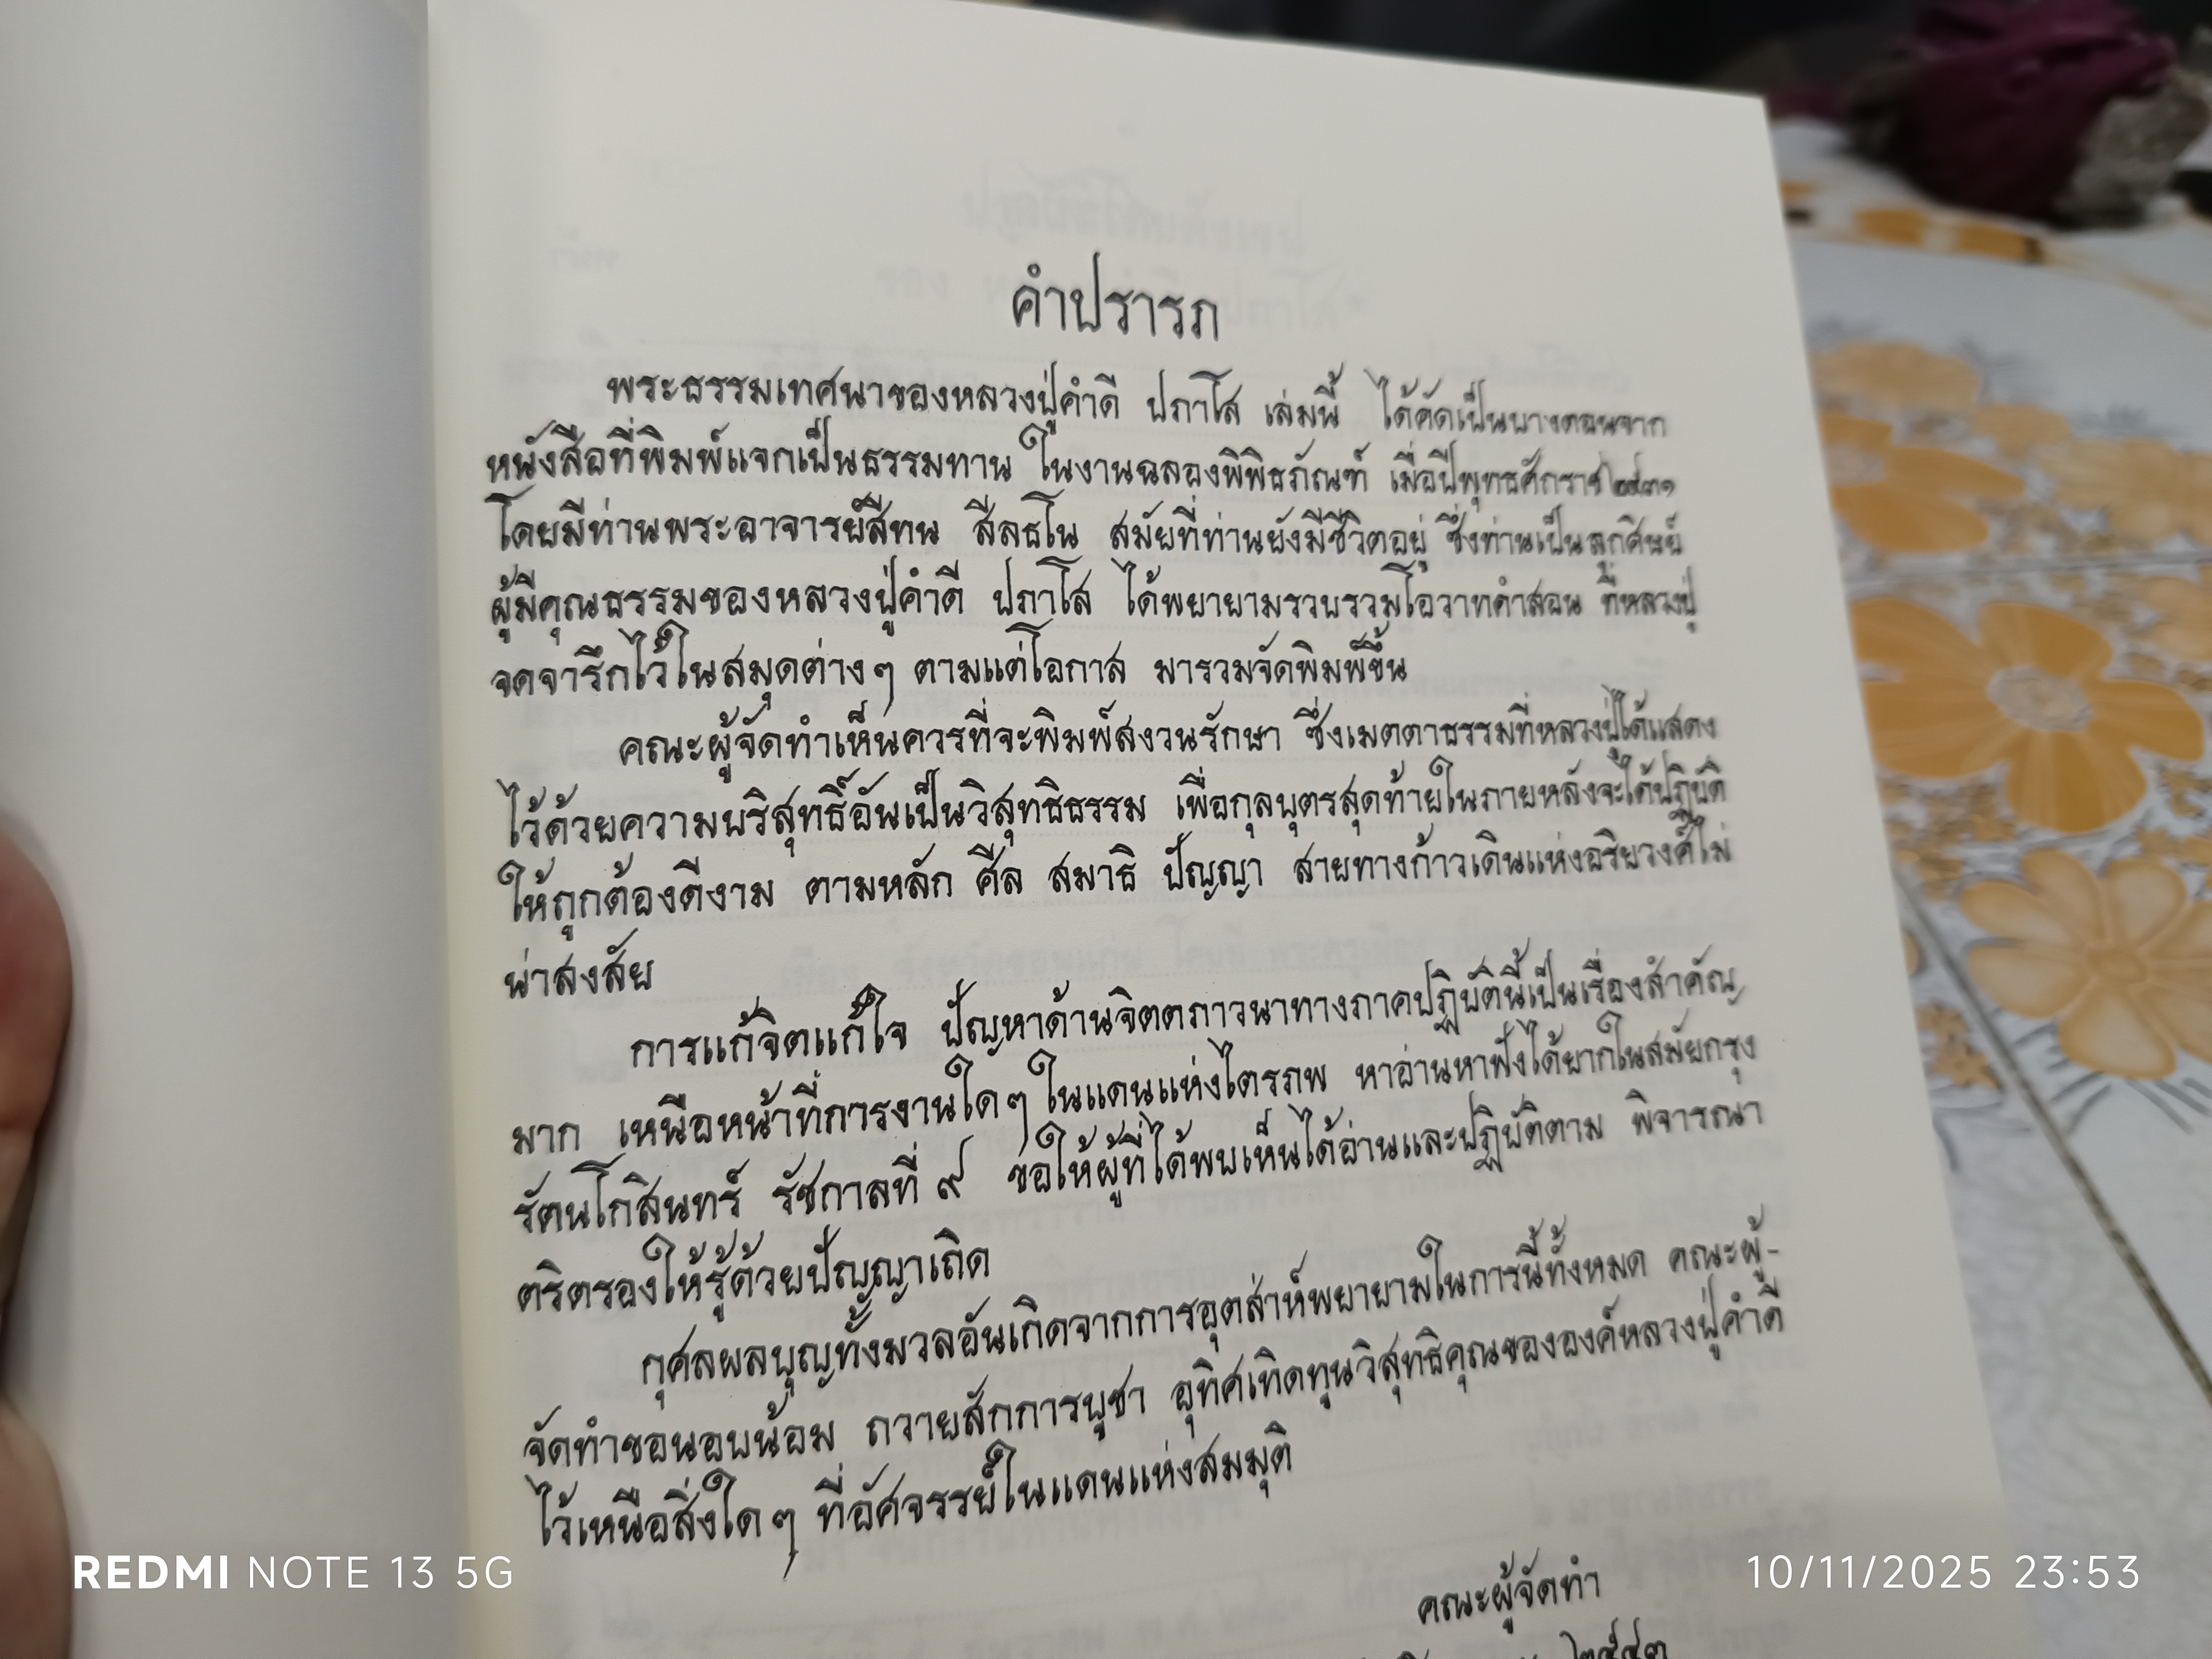 คำปรารภ
พระธรรมเทศนาของหลวงปู่คำดี ปภาโส เล่มนี้ ได้คัดเป็นบางตอนจาก
หนังสือที่พิมพ์แจกเป็นธรรมทาน ในงานฉลองพิพิธภัณฑ์ เมื่อปีพุทธศักราช ๒๕๓๑
โดยมีท่านพระอาจารย์สีทน สีลธโน สมัยที่ท่านยังมีชีวิตอยู่ ซึ่งท่านเป็นลูกศิษย์
ผู้มีคุณธรรมของหลวงปู่คำดี ปภาโส ได้พยายามรวบรวมโอวาทคำสอน ที่หลวงปู่
จดจารึกไว้ในสมุดต่างๆ ตามแต่โอกาส มารวมจัดพิมพ์ขึ้น
คณะผู้จัดทำเห็นควรที่จะพิมพ์สงวนรักษา ซึ่งเมตตาธรรมที่หลวงปู่ได้แสดง
ไว้ด้วยความบริสุทธิ์อันเป็นวิสุทธิธรรม เพื่อกุลบุตรสุดท้ายในภายหลังจะได้ปฏิบัติ
ให้ถูกต้องดีงาม ตามหลัก ศีล สมาธิ ปัญญา สายทางก้าวเดินแห่งอริยวงศ์ไม่
น่าสงสัย
การแก้จิตแก้ใจ ปัญหาด้านจิตตภาวนาทางภาคปฏิบัตินี้เป็นเรื่องสำคัญ
มาก เหนือหน้าที่การงานใดๆ ในแดนแห่งไตรภพ หาอ่านหาฟังได้ยากในสมัยกรุง
รัตนโกสินทร์ รัชกาลที่ ๙ ขอให้ผู้ที่ได้พบเห็นได้อ่านและปฏิบัติตาม พิจารณา
ตริตรองให้รู้ด้วยปัญญาเถิด
กุศลผลบุญทั้งมวลอันเกิดจากการอุตส่าห์พยายามในการนี้ทั้งหมด คณะผู้-
จัดทำขอนอบน้อม ถวายสักการบูชา อุทิศเทิดทูนวิสุทธิคุณขององค์หลวงปู่คำดี
ไว้เหนือสิ่งใดๆ ที่อัศจรรย์ในแดนแห่งสมมุติ
คณะผู้จัดทำ
๒๕๔๓
REDMI NOTE 13 5G
10/11/2025 23:53